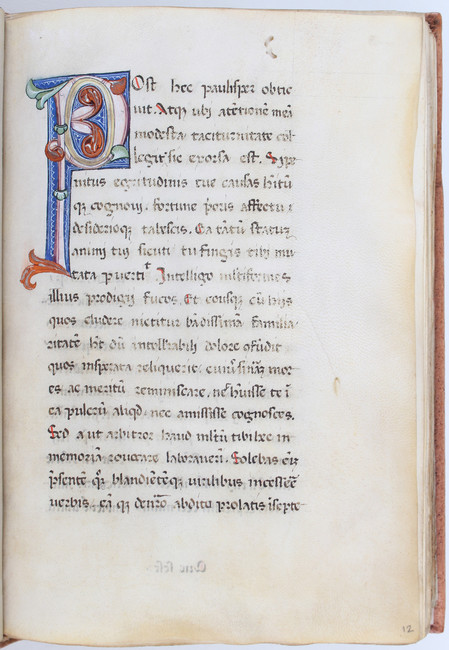 Post hec paulisper obtic
uit. Atqȝ ubi atētionē meā
modesta taciturnitate col
legit sic exorsa est. Si pe
nitus egritudinis tue causas hītū
qȝ cognoui, fortune p̄oris affectu
desiderioqȝ tabescis. Ea tātū statuȝ
animi tui sicuti tu fingis tibi mu
tata puertit. Intelligo multiformes
illius prodigii fucos. Et eousqȝ cū hiis
quos eludere nictitur bādissimā familia
ritatē dū intollerabili dolore ɔfūdit
quos insperata reliquerit. cuius si naturā mor
es ac meritū reminiscare, nec hūisse te ī
ea pulcrū aliqd, nec amisisse cognosces.
Sed a ut arbitror haud multū tibi hec in
memoriā reuocare laborauerī. Solebas enī
p̄sentē qȝ blandiētēqȝ uirilibus incessē
uerbis, eāqȝ de nr̄o abdito prolatis īsepte
12